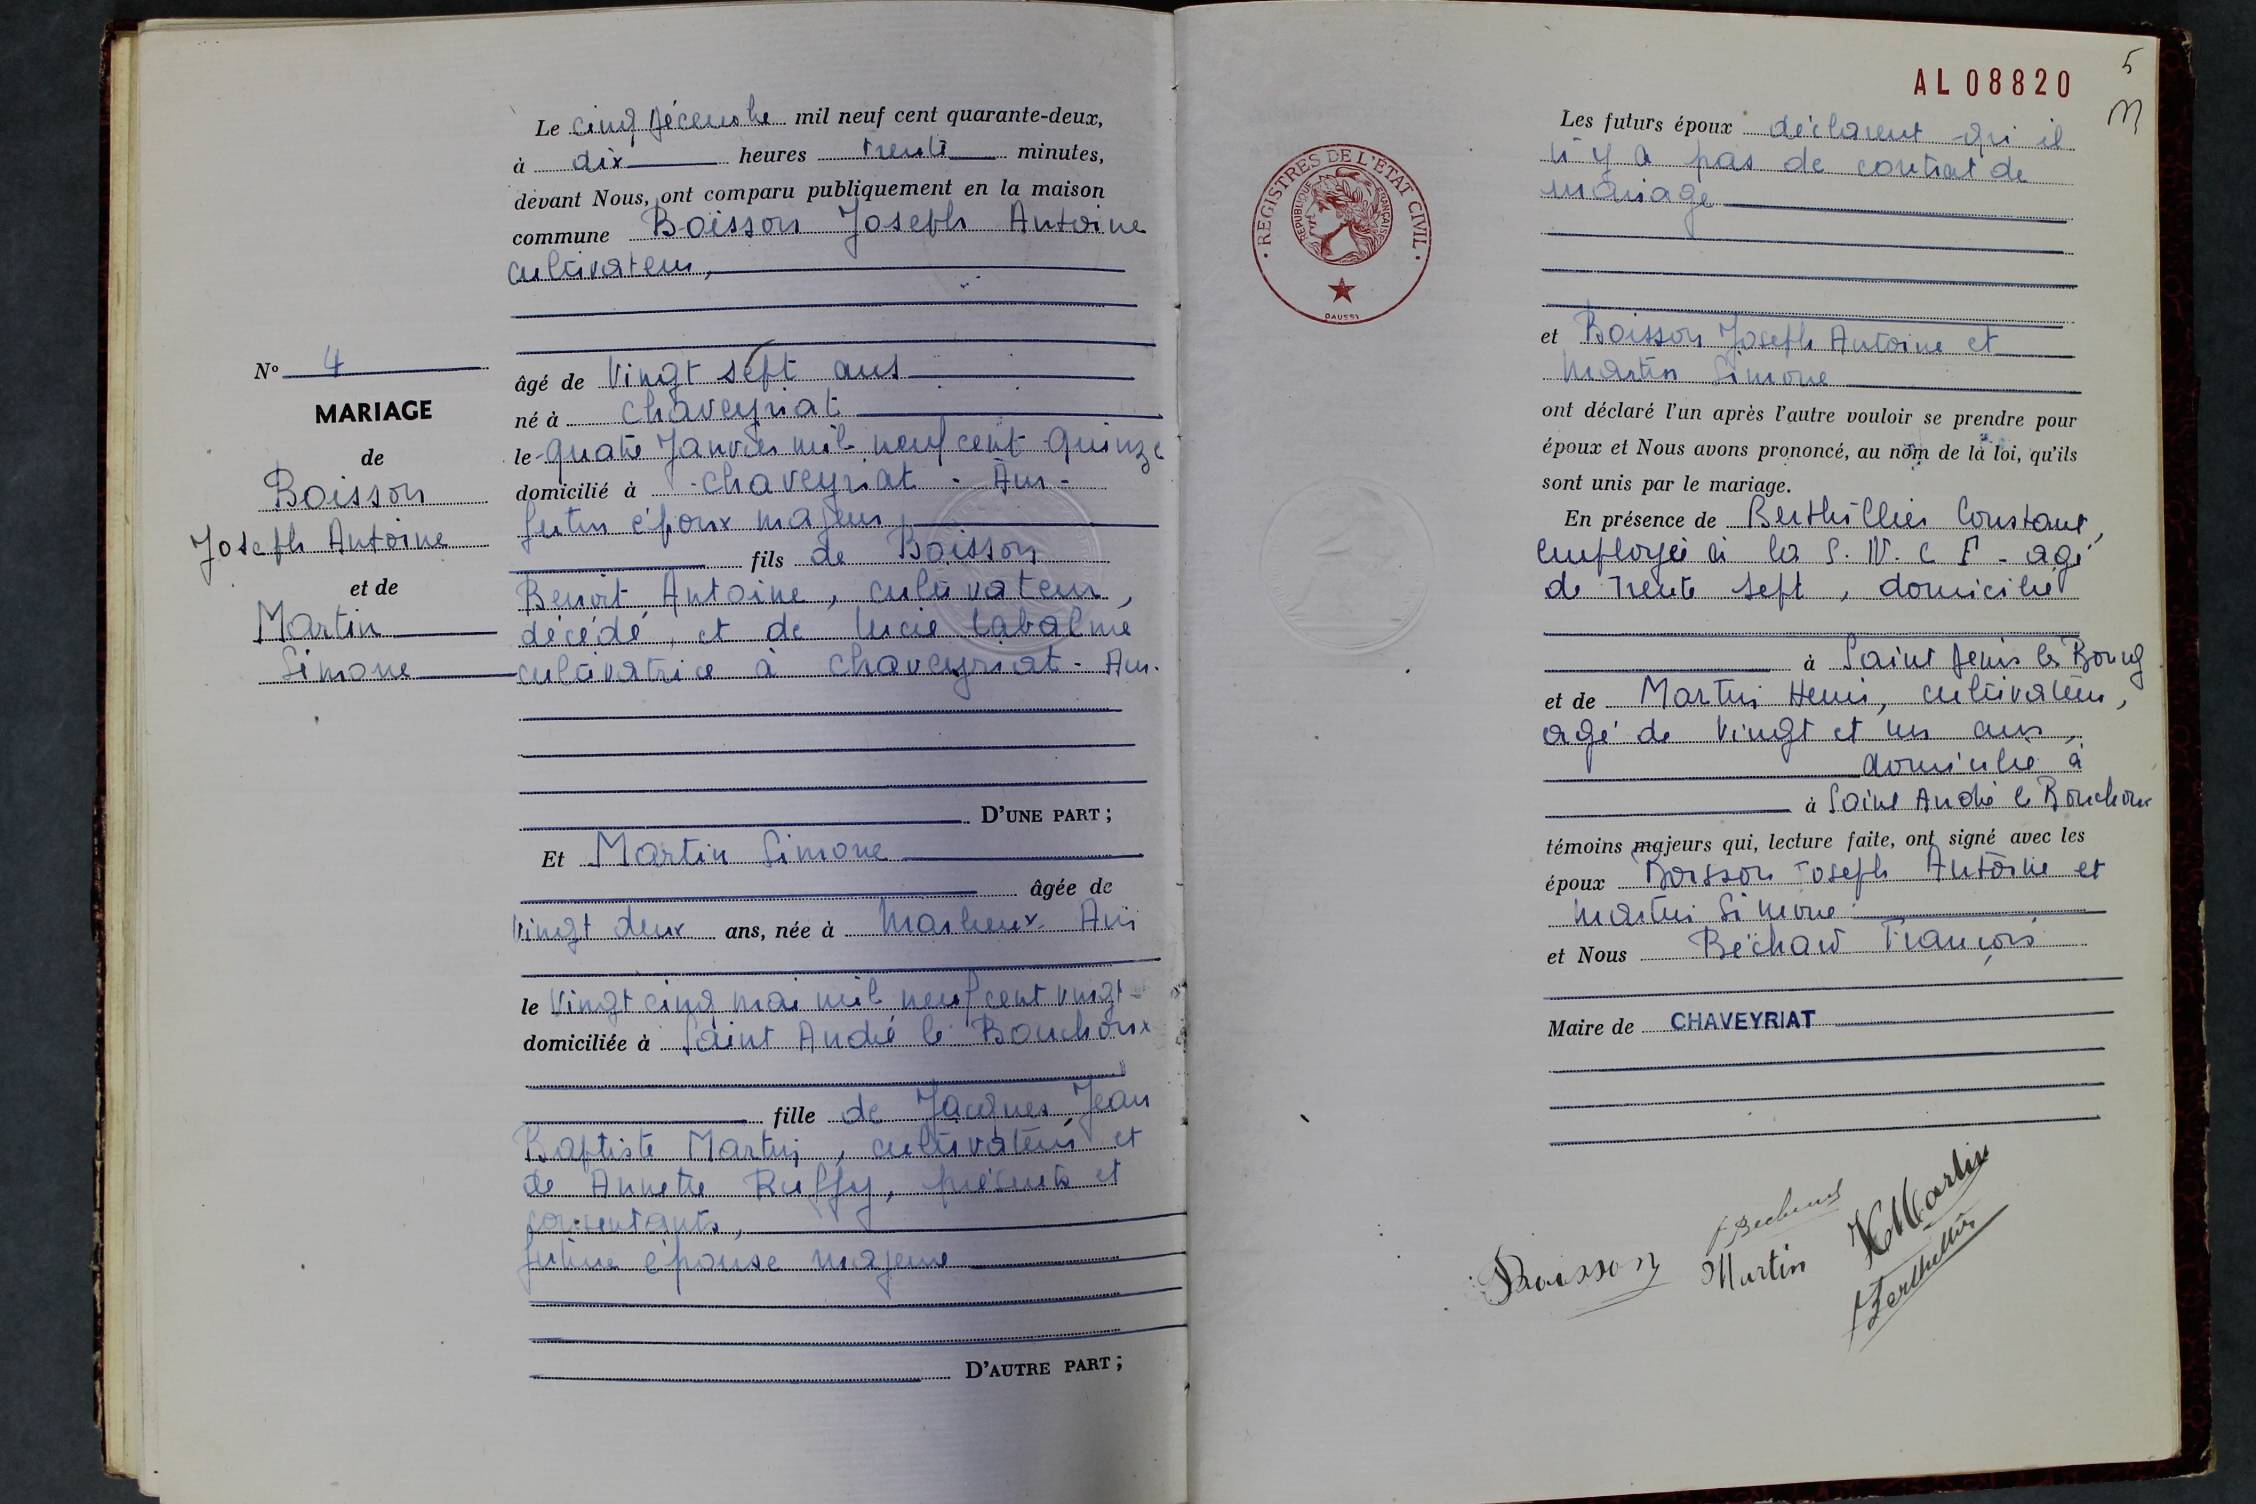 Le cinq décembre mil neuf cent quarante-deux,
à dix heures trente minutes,
devant Nous, ont comparu publiquement en la maison
commune Boisson Joseph Antoine
cultivateur,
N° 4
MARIAGE
de
Boisson
Joseph Antoine
et de
Martin
Simone
âgé de vingt sept ans
né à Chaveyriat
le quatre Janvier mil neuf cent quinze
domicilié à Chaveyriat - Ain -
futur époux majeur
fils de Boisson
Benoit Antoine, cultivateur,
décédé, et de Lucie Labalme
cultivatrice à Chaveyriat - Ain.
D'UNE PART ;
Et Martin Simone
âgée de
vingt deux ans, née à Marlieux Ain
le vingt cinq mai mil neuf cent vingt
domiciliée à Saint André le Bouchoux
fille de Jacques Jean
Baptiste Martin, cultivateurs et
de Annette Ruffy, présents et
consentants,
future épouse majeure
D'AUTRE PART ;
AL 08820
5
REGISTRES DE L'ÉTAT CIVIL
RÉPUBLIQUE FRANÇAISE
DAUSSY
Les futurs époux déclarent qu'il
n'y a pas de contrat de
mariage
et Boisson Joseph Antoine et
Martin Simone
ont déclaré l'un après l'autre vouloir se prendre pour
époux et Nous avons prononcé, au nom de la loi, qu'ils
sont unis par le mariage.
En présence de Berthillier Constant,
employé à la S.N.C.F - agé
de trente sept, domicilié
à Saint Denis les Bourg
et de Martin Henri, cultivateur,
agé de vingt et un ans,
domicilié à
à Saint André le Bouchoux
témoins majeurs qui, lecture faite, ont signé avec les
époux Boisson Joseph Antoine et
Martin Simone
et Nous Béchard François
Maire de CHAVEYRIAT
Boisson
Martin
H Martin
Berthillier